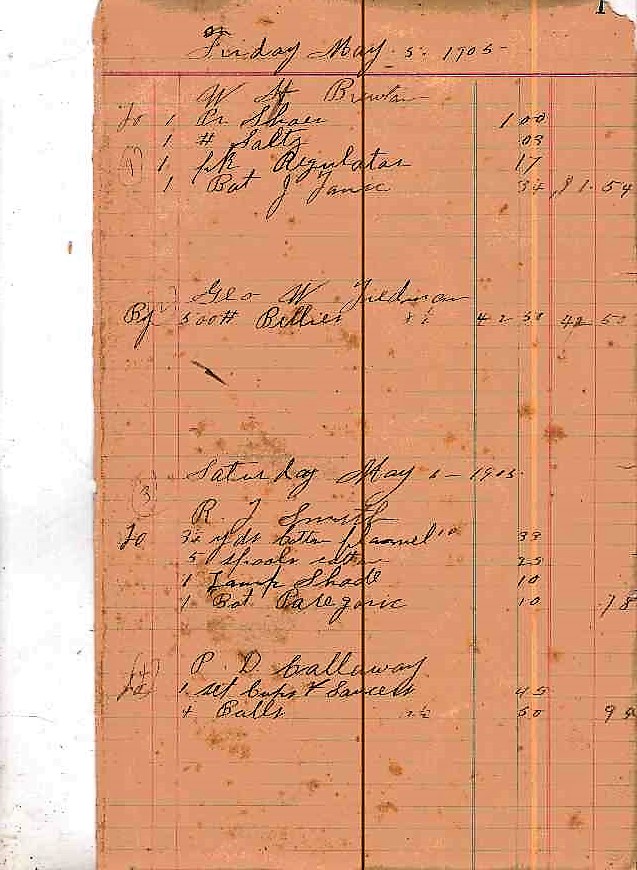 1
on
Friday May 5 - 1905 -
W H
To 1 Pr Shoes 1 00
1 # Salts 03
(1) 1 pk Regulator 17
1 Bot J 34 $1.54
Geo W
By 500# Bellies 8½ 42 50 42 50
Saturday May 6 - 1905
(3)
R. J Smith
To yds Cotton flannel 10 33
5 Spools cotton 25
1 Lamp Shade 10
1 Bot Paregoric 10 .78
(4) P. D Callaway
To 1 set Cups & Saucers 45
4 Balls 12½ 50 9